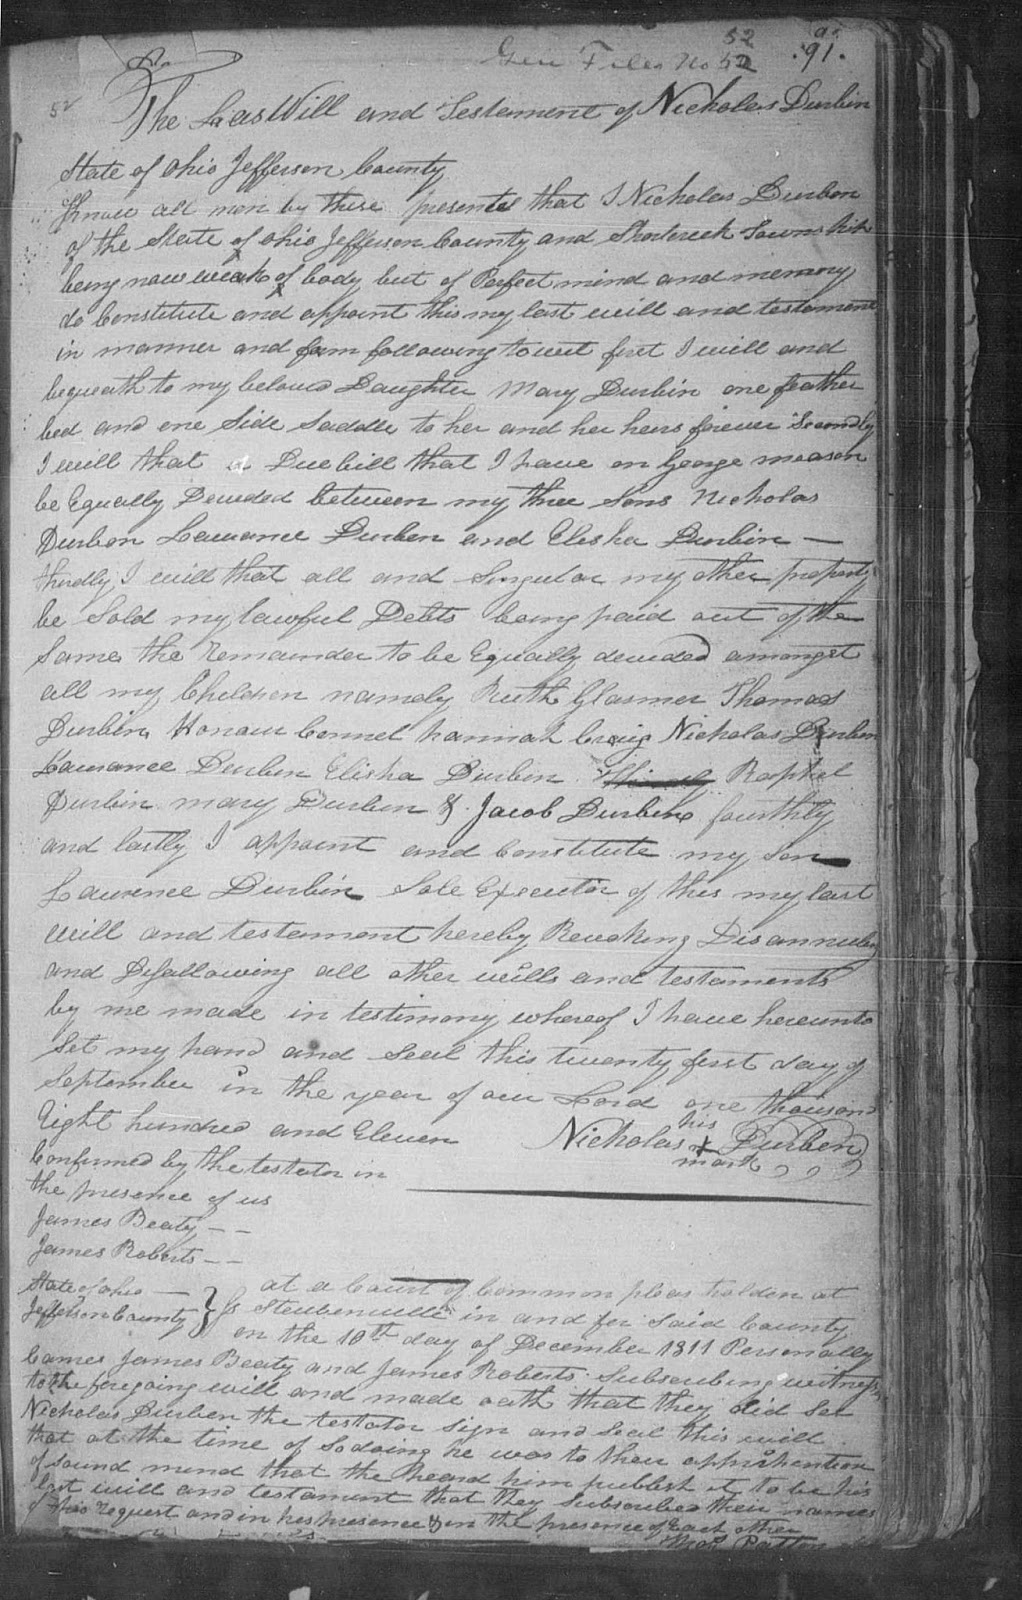 Gen File No 52
52
91.
52
The Last Will and Testament of Nicholas Durbin
State of Ohio Jefferson County
Know all men by these presents that I Nicholas Durbon
of the State of Ohio Jefferson County and Shortcreek Township
being now weak of body but of Perfect mind and memory
do Constitute and appoint this my last will and testament
in manner and form following to wit first I will and
bequeath to my beloved Daughter Mary Durbin one feather
bed and one Side Saddle to her and her heirs forever Secondly
I will that a Due bill that I have on George mason
be Equally Devided between my three Sons Nicholas
Durbon Lawrance Durben and Elisha Durbin —
thirdly I will that all and Singular my other property
be Sold my lawful Debts being paid out of the
Same the Remainder to be Equally devided amongst
all my Children namely Ruth Thomas
Durbin Honour Connel hannah Craig Nicholas Durben
Lawrance Durben Elisha Durben Raphel
Durbin mary Durben & Jacob Durben fourthly
and lastly I appoint and Constitute my Son
Lawrence Durbin Sole Executor of this my last
will and testament hereby Revoking Disannuling
and Disallowing all other wills and testaments
by me made in testimony whereof I have hereunto
Set my hand and Seal this twenty first day of
September in the year of our Lord one thousand
Eight hundred and Eleven
his
Nicholas X Durben
mark
Confirmed by the testator in
the presence of us
James Beaty — —
James Roberts — —
State of Ohio —
Jefferson County } Ss
at a Court of Common pleas holden at
Steubenville in and for Said County
on the 10th day of December 1811 Personally
Came James Beaty and James Roberts Subscribing witnesses
to the foregoing will and made oath that they did See
Nicholas Durben the testator sign and Seal this will
that at the time of So doing he was to their apprehention
of Sound mind that the heard him publish it to be his
last will and testament that they Subscribed their names
at his request and in his presence & in the presence of Each other
Thos Patton